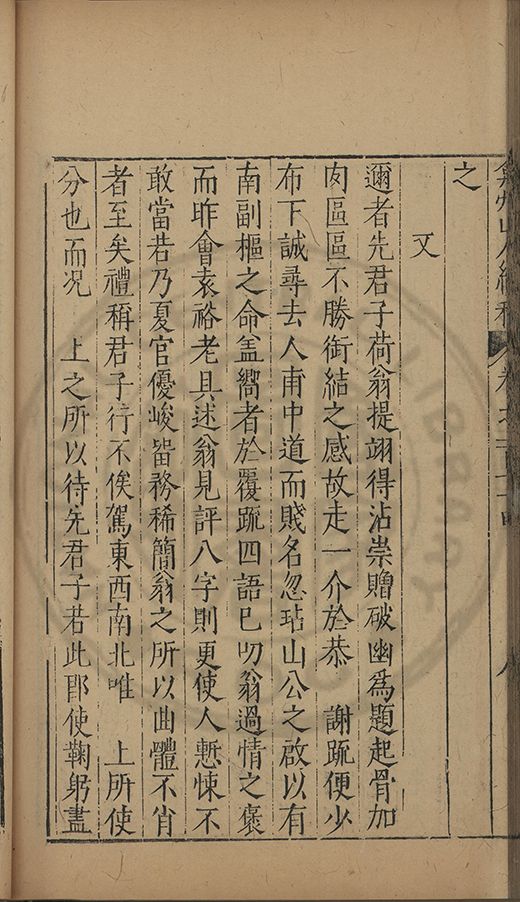 弇州山人續稿 卷之一百七十四 八
之
又
邇者先君子荷翁提翊得沾崇贈破幽為題起骨加
肉區區不勝銜結之感故走一介於恭 謝疏便少
布下誠尋去人甫中道而賤名忽玷山公之啟以有
南副樞之命盖嚮者於覆疏四語已叨翁過情之褒
而昨會袁裕老具述翁見評八字則更使人慙悚不
敢當若乃夏官優峻畱務稀簡翁之所以曲體不肖
者至矣禮稱君子行不俟駕東西南北唯 上所使
分也而况 上之所以待先君子若此郎使鞠躬盡